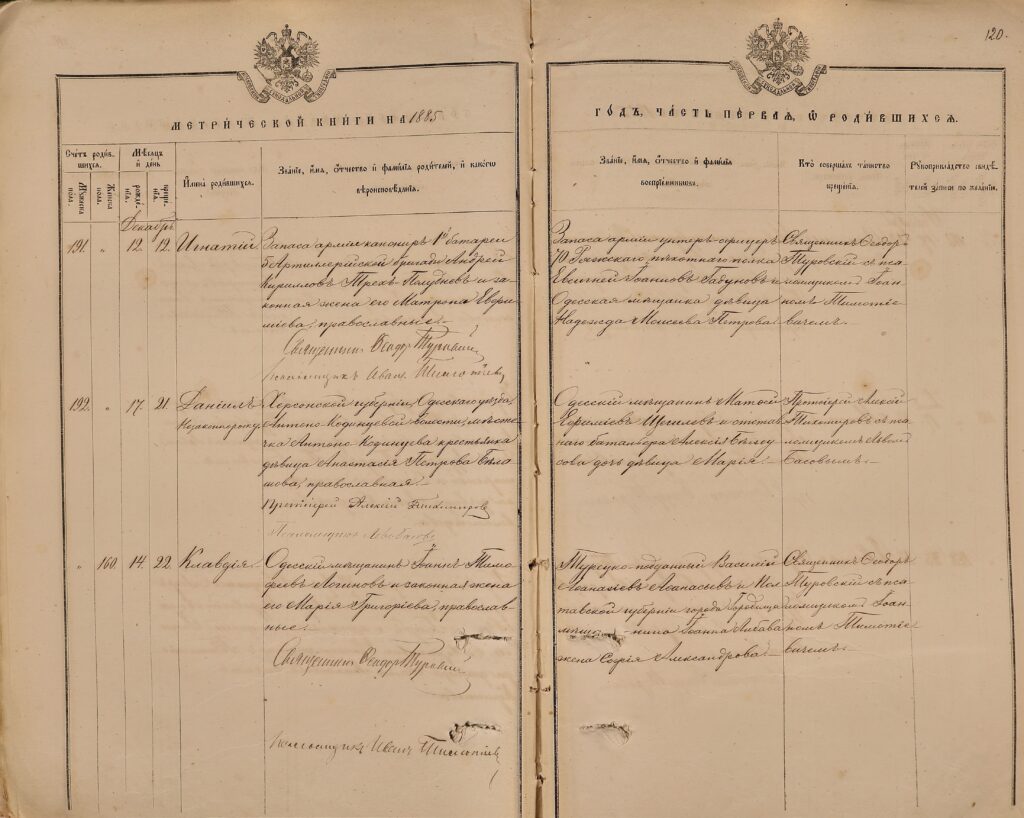 120.
МЕТРИ́ЧЕСКОЙ КНИ́ГИ НА 1885
ГОДЪ, ЧА́СТЬ ПЕ́РВАЯ, Ѡ РОДИ́ВШИХСѦ.
Счетъ родив-
шихсѧ.
Мужеска
пола.
Женска
пола.
Мѣсѧцъ
и день
рожде-
нїѧ.
креще-
нїѧ.
Имена родившихсѧ.
Званїе, имѧ, ѻтчество и фамилїѧ родителей, и какогѡ
вѣроисповѣданїѧ.
Званїе, имѧ, ѻтчество и фамилїѧ
воспрїемниковъ.
Кто совершалъ таинство
крещенїѧ.
Рꙋкоприкладство свидѣ-
телей записи по желанїю.
Декабрь
191. " 12. 12. Игнатій
Запаса арміи канониръ 1й батареи
5 Артиллерійской бригады Андрей
Кирилловъ Трехъ-Полубневъ и за-
конная жена его Матрона Евфи-
міева, православные.
Священникъ Ѳеодоръ Туровскій
Псаломщикъ Иванъ Тимоѳіевичъ
Запаса арміи унтеръ-офицеръ
70 пѣхотнаго полка
Евсигній Іоанновъ Гадуновъ и
Одесская мѣщанка дѣвица
Надежда Моисеева Петрова.
Священникъ Ѳеодоръ
Туровскій съ пса-
ломщикомъ Іоан-
номъ Тимоѳіе-
вичемъ.
192. " 17. 21. Даніилъ
Незаконнорожд.
Херсонской губерніи, Одесскаго уѣзда,
Антоно-Кодинцевой волости, мѣстеч-
ка Антоно-Кодинцева крестьянка
дѣвица Анастасія Петрова Бѣла-
шова, православная.
Протоіерей Алексій Тихомировъ
Псаломщикъ
Одесскій мѣщанинъ Матѳей
Ефиміевъ и
наго Алексія Бѣлоу-
сова дочь дѣвица Марія.
Протоіерей Алексій
Тихомировъ съ пса-
ломщикомъ
Басовымъ.
" 160. 14. 22. Клавдія.
Одесскій мѣщанинъ Іоаннъ Тимо-
ѳеевъ Логиновъ и законная жена
его Марія Григоріева, православ-
ные.
Священникъ Ѳеодоръ Туровскій
Псаломщикъ Иванъ Тимоѳіевичъ
Турецко-подданный Василій
Аѳанасіевъ Аѳанасьевъ и Пол-
тавской губерніи города Городища
Іоанна
жена Софія Александрова.
Священникъ Ѳеодоръ
Туровскій съ пса-
ломщикомъ Іоан-
номъ Тимоѳіе-
вичемъ.